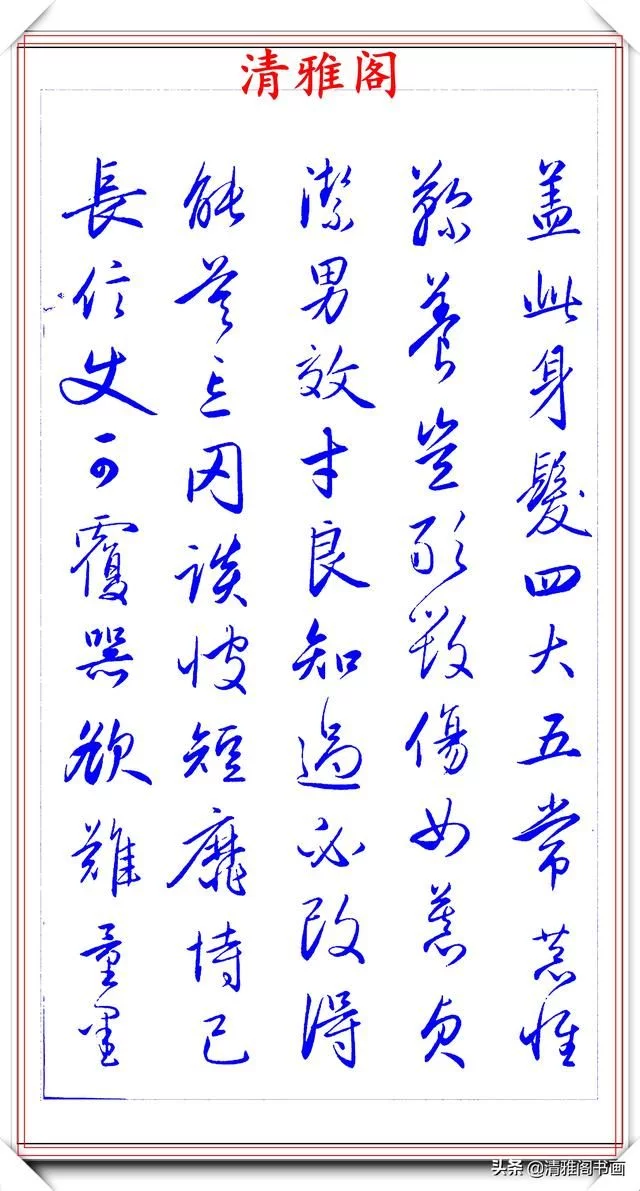 清雅阁
盖此身髮四大五常恭惟
鞠養豈敢毀傷女慕貞
潔男效才良知過必改得
能莫忘罔談彼短靡恃己
長信使可覆器欲難量墨
头条 @清雅阁书画